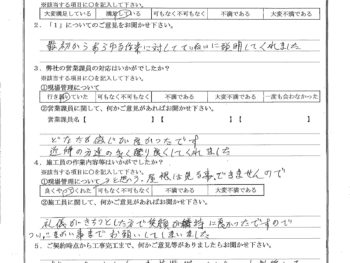 ※該当する項目に○を記入して下さい。
大変満足している 満足している 可もなく不可もなく 不満である 大変不満である
2．「1」についてのご意見をお聞かせ下さい。
最初からあらゆる作業に対していねいに説明してくれました
3．弊社の営業課員の対応はいかがでしたか？
※該当する項目に○を記入して下さい。
①現場管理について
行き届いていた 可もなく不可もなく 不満である 大変不満である 一度も会わなかった
②営業課員に関して、何かご意見があればお聞かせ下さい。
営業課員名【 】【 】【 】
どなたも感じが良かったです
近所の方達の
良くしてくれました
4．施工員の作業内容等はいかがでしたか？
※該当する項目に○を記入して下さい。
①現場管理について と思う。屋根は見る事できませんので
良くやってくれた 可もなく不可もなく 不満である 大変不満である
②施工員に関して、何かご意見があればお聞かせ下さい。
礼儀がきちっとした方で笑顔が 良かったですので
お願いしてしまいました
5．ご契約時点から工事完工まで、何かご意見等がありましたらお聞かせ下さい。